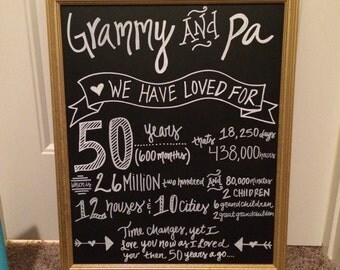 Grammy AND Pa
WE HAVE LOVED FOR
50 years that's 18,250 days
(600 months) 438,000 hours
which is 26 MILLION two hundred AND 80,000 minutes
2 CHILDREN
12 houses 10 Cities 6 grandchildren
2 great grandchildren
Time changes, yet I
love you now as I loved
you then 50 years ago...